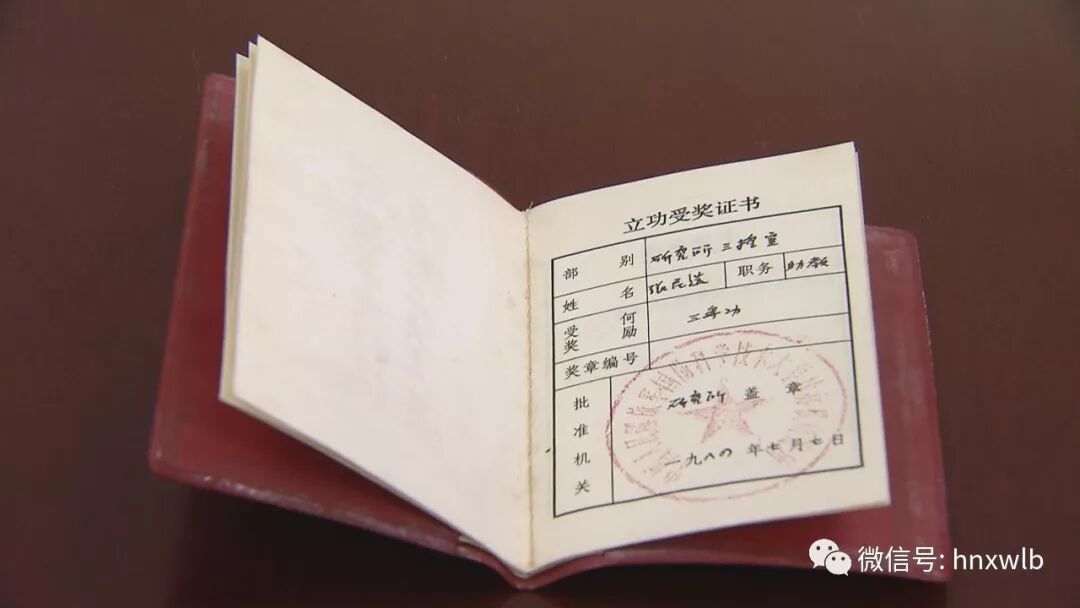 立功受奖证书
部别 研究所三控室
姓名 张民选 职务 助教
受何奖励 三等功
奖章编号
批准机关 研究所 盖章
一九八〇年七月七日
微信号: hnxwlb